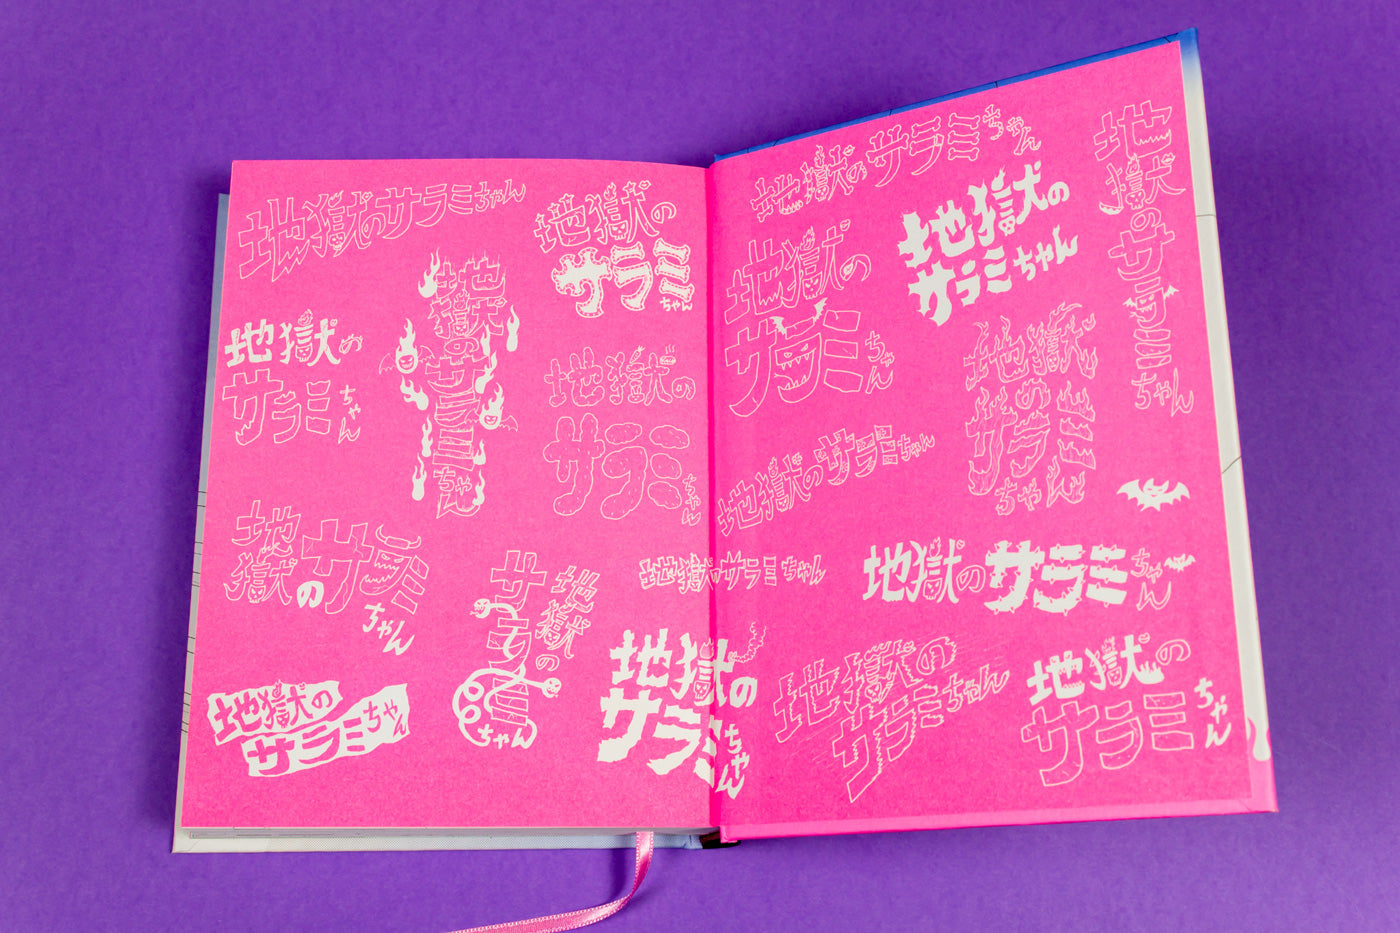 地獄のサラミちゃん
地獄の
サラミ
ちゃん
地獄の
サラミ
ちゃん
地獄のサラミちゃん
地獄の
サラミ
ちゃん
地獄の
サラミ
ちゃん
地獄の
サラミ
ちゃん
地獄の
サラミちゃん
地獄のサラミちゃん
地獄の
サラミ
ちゃん
地獄のサラミちゃん
地獄の
サラミちゃん
地獄のサラミちゃん
地獄の
サラミ
ちゃん
地獄の
サラミ
ちゃん
地獄のサラミちゃん
地獄のサラミちゃん
地獄の
サラミちゃん
地獄の
サラミ
ちゃん